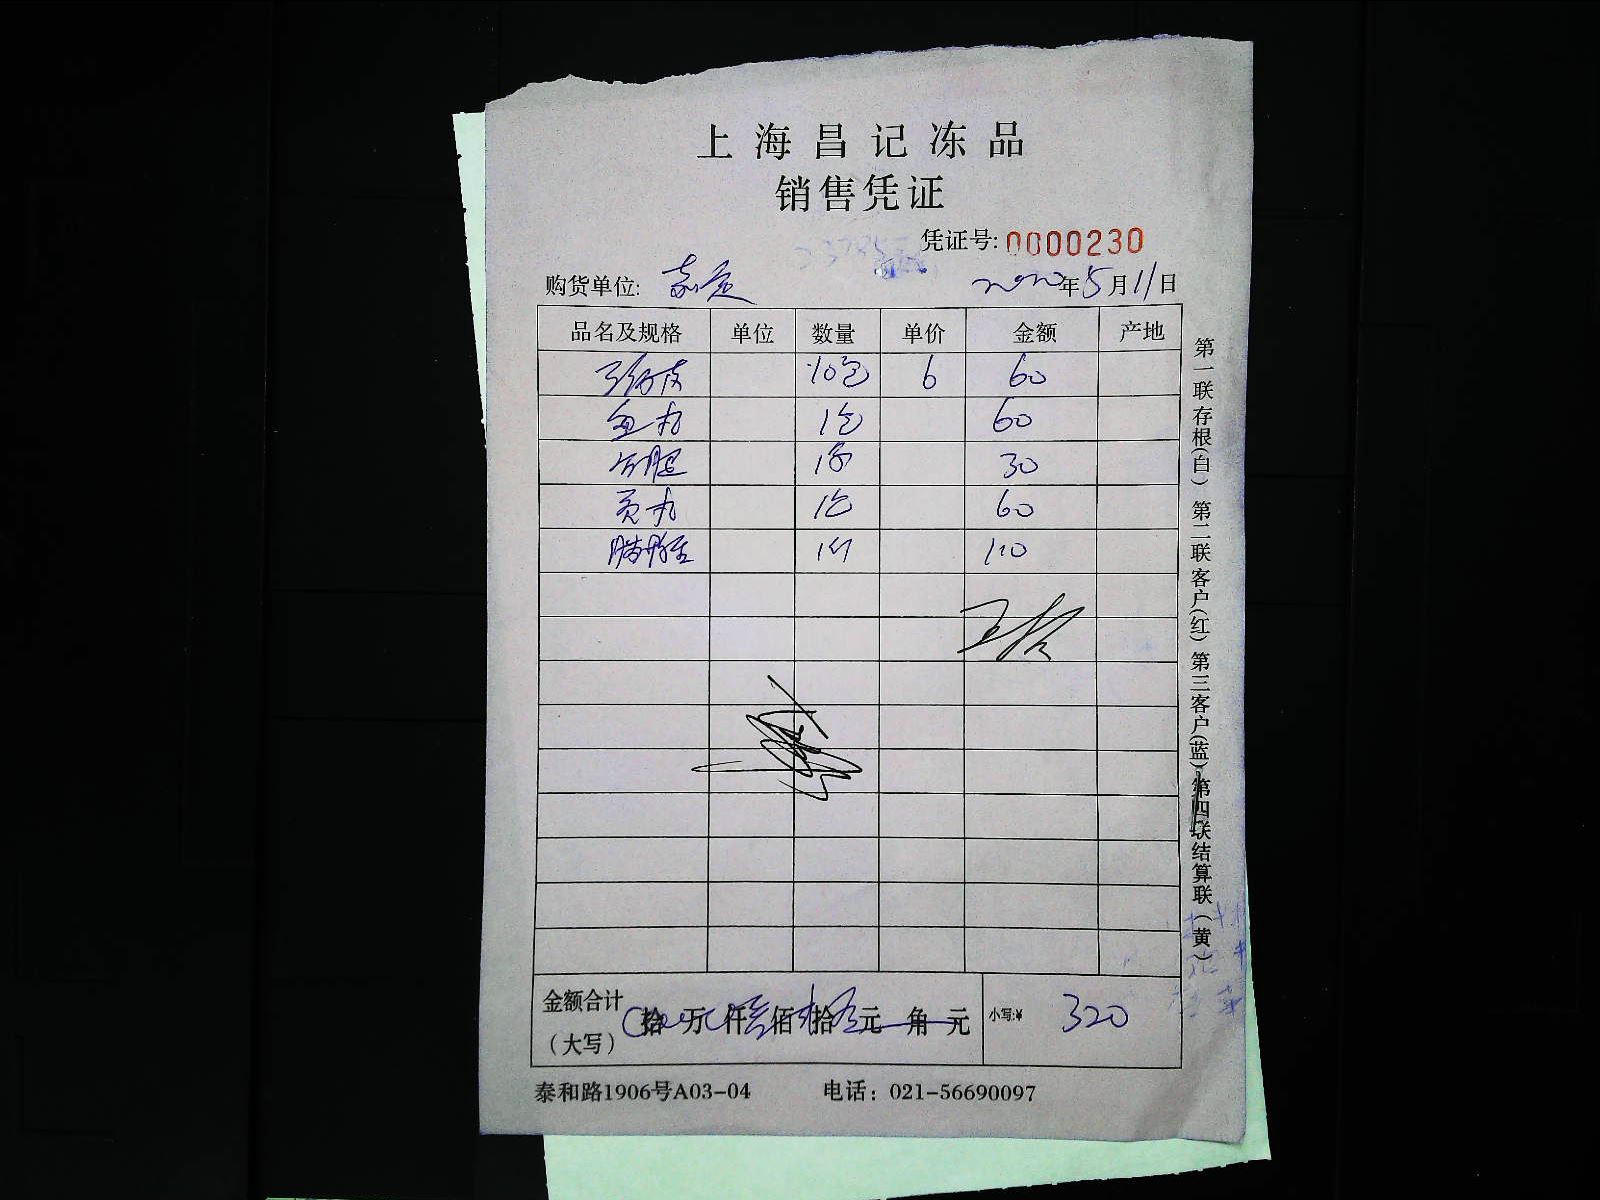 上海昌记冻品
销售凭证
凭证号: 0000230
购货单位: 嘉定 2020年5月11日
品名及规格 单位 数量 单价 金额 产地
10包 6 60
鱼丸 1包 60
1 30
贡丸 1包 60
1 110
金额合计 拾万仟佰拾元角元 小写:¥ 320
(大写)
泰和路1906号A03-04 电话: 021-56690097
第一联存根(白) 第二联客户(红) 第三客户(蓝) 第四联结算联(黄)